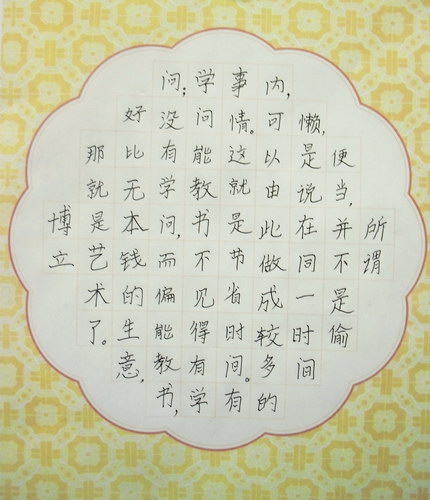 所谓
便当,并不是偷
懒,是说在同一时间
内,可以由此做成较多的
事情。这就是节省时间。有
学问能教书不见得有学
问;没有学问,而偏能教书,
好比无本钱的生意,
那就是艺术了。
博立